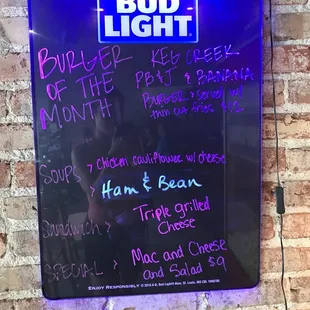 BUD
LIGHT
BURGER
OF THE
MONTH
KEG CREEK
PB&J & BANANA
BURGER served w/
thin cut fries
SOUPS > chicken cauliflower w/ cheese
> Ham & Bean
Sandwich > Triple grilled
Cheese
SPECIAL > Mac and Cheese
and Salad $9
ENJOY RESPONSIBLY